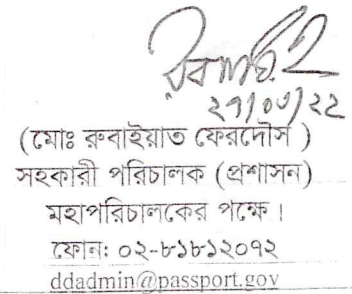 ২৭/০৩/২২
(মোঃ রুবাইয়াত ফেরদৌস )
সহকারী পরিচালক (প্রশাসন)
মহাপরিচালকের পক্ষে ।
ফোন: ০২-৮১৮১২০৭২
ddadmin@passport.gov